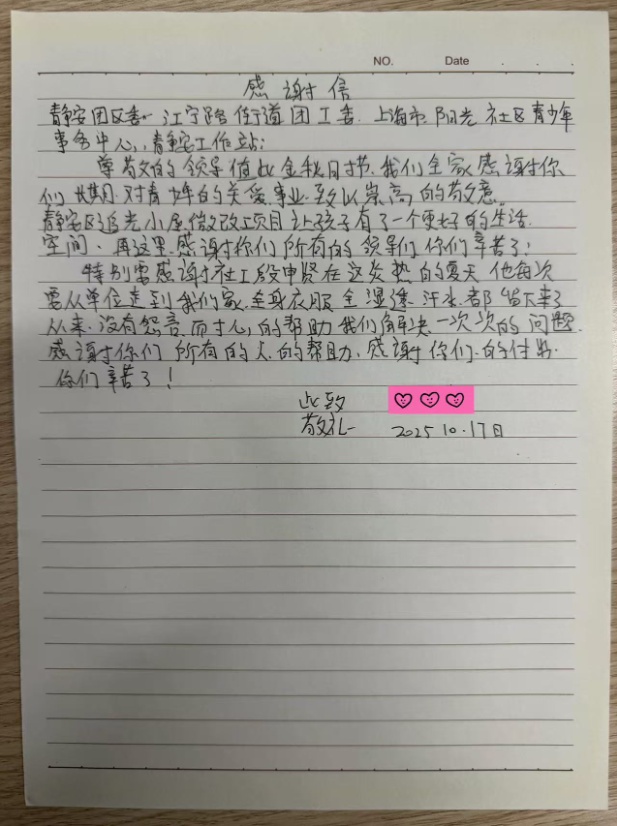 NO. Date
感谢信
静安团区委、江宁路街道团工委、上海市阳光社区青少年
事务中心,静安工作站:
尊敬的领导值此金秋时节,我们全家感谢你
们长期对青少年的关爱事业,致以崇高的敬意。
静安区追光小屋微改工项目让孩子有了一个更好的生活
空间、再这里感谢你们所有的领导们你们辛苦了!
特别要感谢社工段申贤在这炎热的夏天他每次
要从单位走到我们家,全身衣服全湿透,汗水都留下来了
从来没有怨言,而寸心的帮助我们解决一次次的问题.
感谢你们所有的人的帮助,感谢你们的付出.
你们辛苦了!
此致
敬礼
2025 10.17日